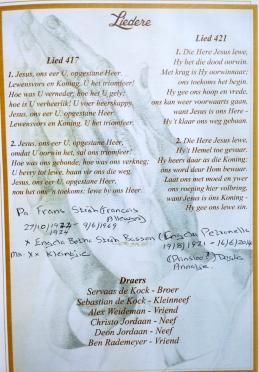 Liedere
Lied 417
1. Jesus, ons eer U, opgestane Heer.
Lewensvors en Koning, U het triomfeer!
Hoe was U verneder, hoe het U gely;
hoe is U verheerlik! U voer heerskappy.
Jesus, ons eer U, opgestane Heer,
Lewensvors en Koning, U het triomfeer.
2. Jesus, ons eer U, opgestane Heer,
omdat U oorwin het, sal ons triomfeer!
Hoe was ons gebonde; hoe was ons verkneg;
U bevry tot lewe, baan vir ons die weg.
Jesus, ons eer U, opgestane Heer,
nou het ons 'n toekoms: lewe by ons Heer.
Lied 421
1. Die Here Jesus lewe,
Hy het die dood oorwin.
Met krag is Hy oorwinnaar;
ons toekoms het begin.
Hy gee ons hoop en vrede,
ons kan weer voorwaarts gaan,
want Jesus is ons Here -
Hy't klaar ons weg gebaan.
2. Die Here Jesus lewe,
Hy't Hemel toe gevaar.
Hy heers daar as die Koning;
ons word daar Hom bewaar.
Laat ons met moed en ywer
ons roeping hier volbring,
want Jesus is ons Koning -
Hy gee ons lewe sin.
Pa Frans (Francois
27/10/1922 - 9/6/1969
1924
x Engela
19/8/1921 - 16/6/
Ma xx Kleintjie
Draers
Servaas de Kock - Broer
Sebastian de Kock - Kleinneef
Alex Weideman - Vriend
Christo Jordaan - Neef
Deon Jordaan - Neef
Ben Rademeyer - Vriend